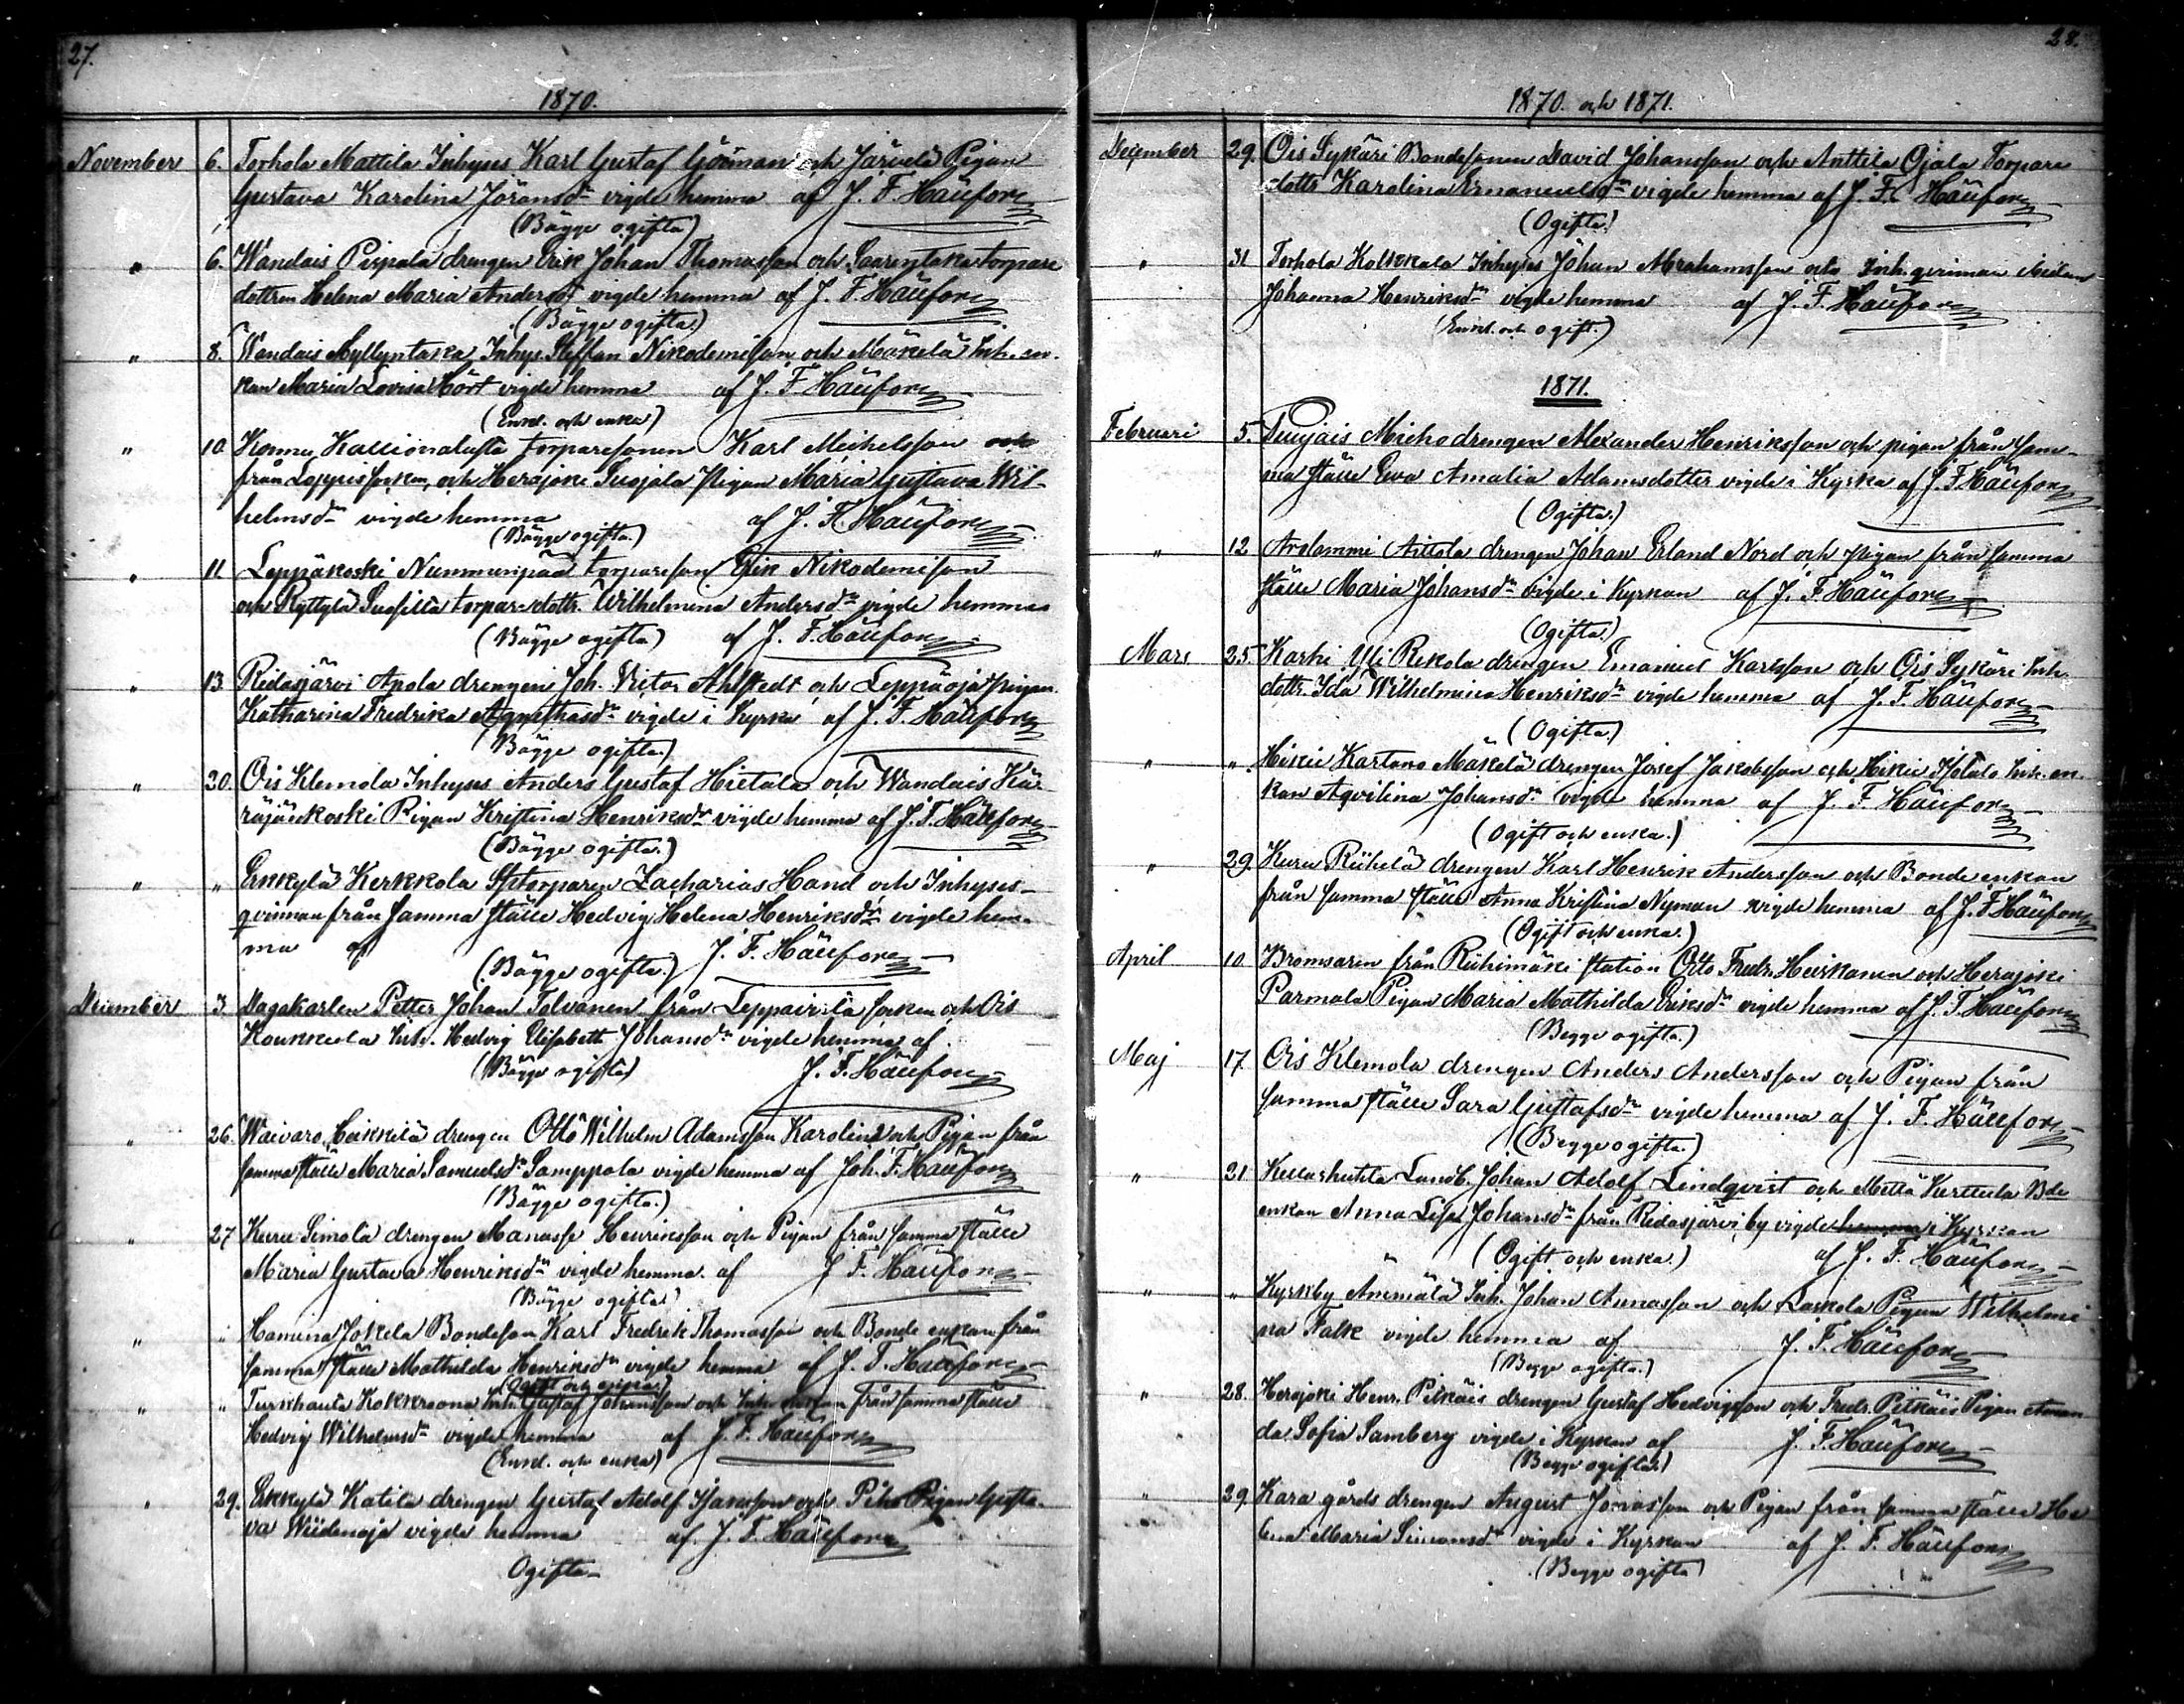 27.
1870.
November 6. Torhola Mattila Inhyses Karl Gustaf Göönan och Järvelä Pigan
Gustava Karolina Göransdr vigde hemma af J. F. Häufors
(Bägge ogifta)
" 6. Wandais Pispala drengen Erik Johan Thomasson och Saarentaka torpare
dottren Helena Maria Andersdr vigde hemma af J. F. Häufors
(Bägge ogifta.)
" 8. Wandais Myllyntaka Inhys. Steffan Nikodemison och Mäkelä Inh. en-
kan Maria Lovisa Mört vigde hemma af J. F. Häufors
(Enkl. och enka)
" 10. Konnu Kallionalusta torparesonen Karl Michelsson
från Loppis socken, och Herajoki Tuojala Pigan Maria Gustava Wil-
helmsdr vigde hemma af J. F. Häufors
(Bägge ogifta.)
" 11. Leppäkoski Nummenpää torpareson Erik Nikodemison
och Ryttylä torpar-dottr. Wilhelmina Andersdr vigde hemma
(Bägge ogifta) af J. F. Häufors
" 13. Ridasjärvi Apola drengen Joh. Victor Ahlstedt och Leppäoja Pigan
Katharina Fredrika Agnethasdr vigde i Kyrka af J. F. Häufors
(Bägge ogifta.)
" 20. Ois Klemola Inhyses Anders Gustaf Hietala och Wandais Kä-
räjäkoski Pigan Kristina Henriksdr vigde hemma af J. F. Häufors
(Bägge ogifta.)
" " Erkkylä Kerkkola Sjstorparen Zacharias Hand och Inhyses-
qvinnan från samma ställe Hedvig Helena Henriksdr vigde hem-
ma af J. F. Häufors
(Bägge ogifta.)
December 3. Dagakarlen Petter Johan Tolvanen från Leppävirta socken och Ois
Koukkula Inh. Hedvig Elisabeth Johansdr vigde hemma af
(Bägge ogifta) J. F. Häufors
" 26. Waivaro Heikkilä drengen Otto Wilhelm Adamsson Karolina och Pigan från
samma ställe Maria Samuelsdr Samppala vigde hemma af Joh. F. Häufors
(Bägge ogifta.)
" 27. Kuru Simola drengen Manasse Henriksson och Pigan från samma ställe
Maria Gustava Henriksdr vigde hemma af J. F. Häufors
(Bägge ogifta)
" " Hamina Jokela Bondeson Karl Fredrik Thomasson och Bonde enkan från
samma ställe Mathilda Henriksdr vigde hemma af J. F. Häufors
(Ogift och enka.)
" " Turkhauta Kokkraona Inh. Gustaf Johansson och Inh. enkan från samma ställe
Hedvig Wilhelmsdr vigde hemma af J. F. Häufors
(Enkl. och enka)
" 29. Erkkylä Katila drengen Gustaf Adolf och Piha Pigan Gusta-
va Wiidenoja vigde hemma af J. F. Häufors
Ogifta-
28.
1870. och 1871.
December 29. Ois Sykäri Bondesonen David Johansson och Anttila Ojala Torpare
dottr Karolina Emanuelsdr vigde hemma af J. F. Häufors
(Ogifta.)
" 31 Torhola Kolkkala Inhyses Johan Abrahamsson och Inh. qvinnan
Johanna Henriksdr vigde hemma af J. F. Häufors
(Enkl. och ogift.)
1871.
Februari 5. Micko drengen Alexander Henriksson och pigan från sam-
ma ställe Eva Amalia Adamsdotter vigde i Kyrka af J. F. Häufors
(Ogifta.)
" 12 Arolammi Aittola drengen Johan Erland Nord och Pigan från samma
ställe Maria Johansdr vigde i Kyrkan af J. F. Häufors
(Ogifta.)
Mars 25. Karhi Yli Rekola drengen Emanuel Karlsson och Ois Sykäri Inh.
dottr. Ida Wilhelmina Henriksdr vigde hemma af J. F. Häufors
(Ogifta.)
" ". Hikiä Kartano Mäkelä drengen Josef Jakobsson och Hikiä Inh. en-
kan Aqvilina Johansdr vigde hemma af J. F. Häufors
(Ogift och enka.)
" 29. Kuru Riihelä drengen Karl Henrik Andersson och Bonde enkan
från samma ställe Anna Kristina Nyman vigde hemma af J. F. Häufors
(Ogift och enka.)
April 10. Bromsaren från Riihimäki station Otto Fredr. Heiskanen och Herajoki
Parmala Pigan Maria Mathilda Eriksdr vigde hemma af J. F. Häufors
(Begge ogifta.)
Maj 17. Ois Klemola drengen Anders Andersson och Pigan från
samma ställe Sara Gustafsdr vigde hemma af J. F. Häufors
(Begge ogifta.)
" 21 Landb. Johan Adolf Lindqvist och Mettä Kerttula Bde
enkan Anna Lisa Johansdr från Ridasjärvi by vigde hemma i Kyrkan
(Ogift och enka.) af J. F. Häufors
" " Kyrkby Ämmälä Inh. Johan Annasson och Laskela Pigan Wilhelmi
na Falk vigde hemma af J. F. Häufors
(Begge ogifta.)
" 28. Herajoki Henr. Pitkäis drengen Gustaf Hedvigsson och Fredr. Pitkäis Pigan Aman
da Sofia Samberg vigde i Kyrkan af J. F. Häufors
(Begge ogifta)
" 29. Kara gårds drengen August Jonasson och Pigan från samma ställe He
lena Maria Simonsdr vigde i Kyrkan af J. F. Häufors
(Begge ogifta)